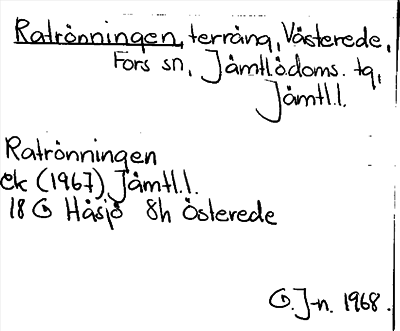 Ratrönningen, terräng, Västerede,
Fors sn, Jämtlädoms. tg,
Jämtl.l.
Ratrönningen
ek (1967) Jämtl.l.
18 G Håsjö 8h Österede
G. J-n. 1968.